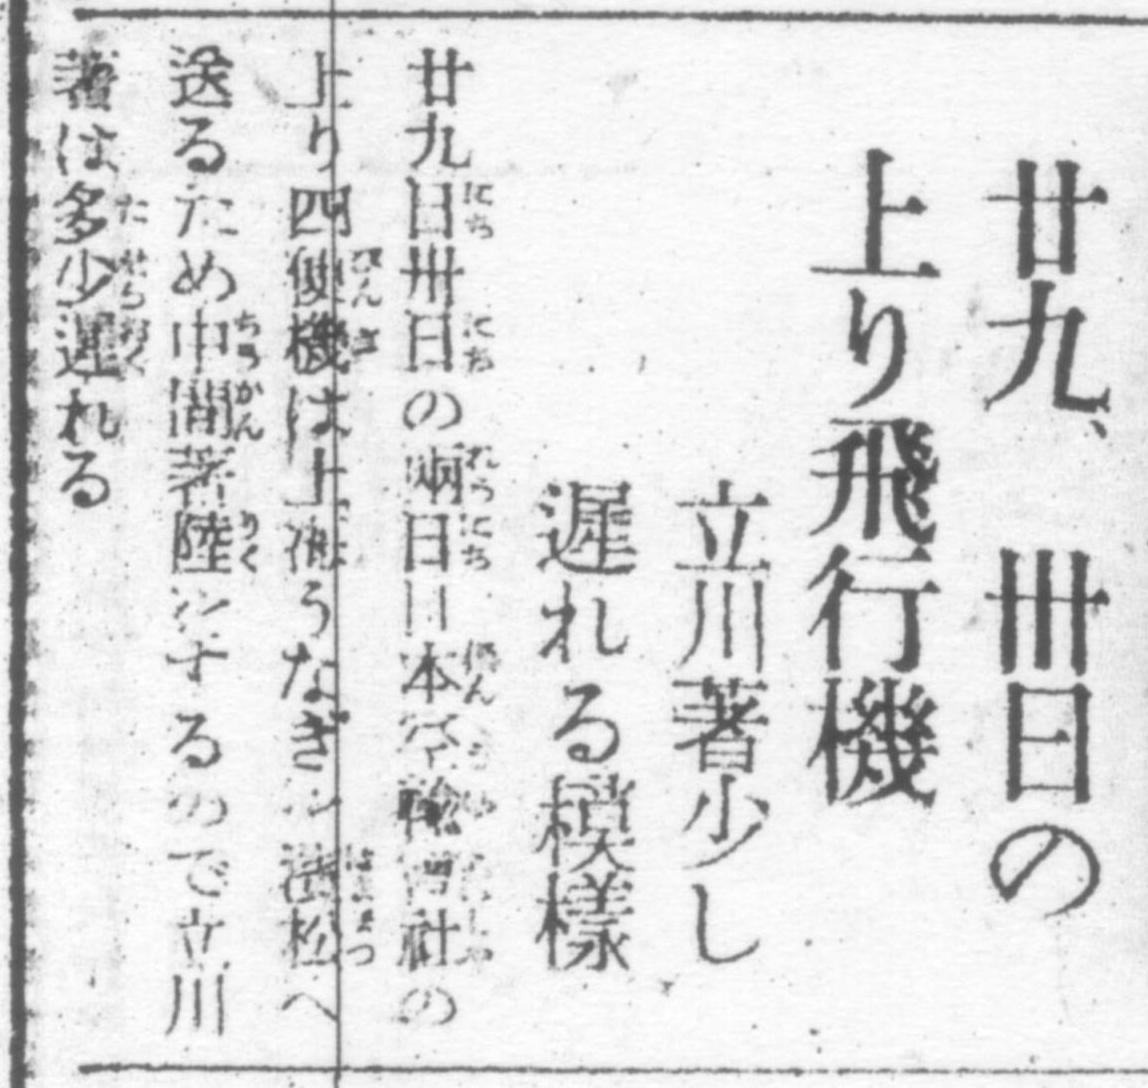 廿九、卅日の
上り飛行機
立川著少し
遲れる模樣
廿九日卅日の兩日日本空輸會社の
上り四便機は上海うなぎを濱松へ
送るため中間著陸をするので立川
著は多少遲れる